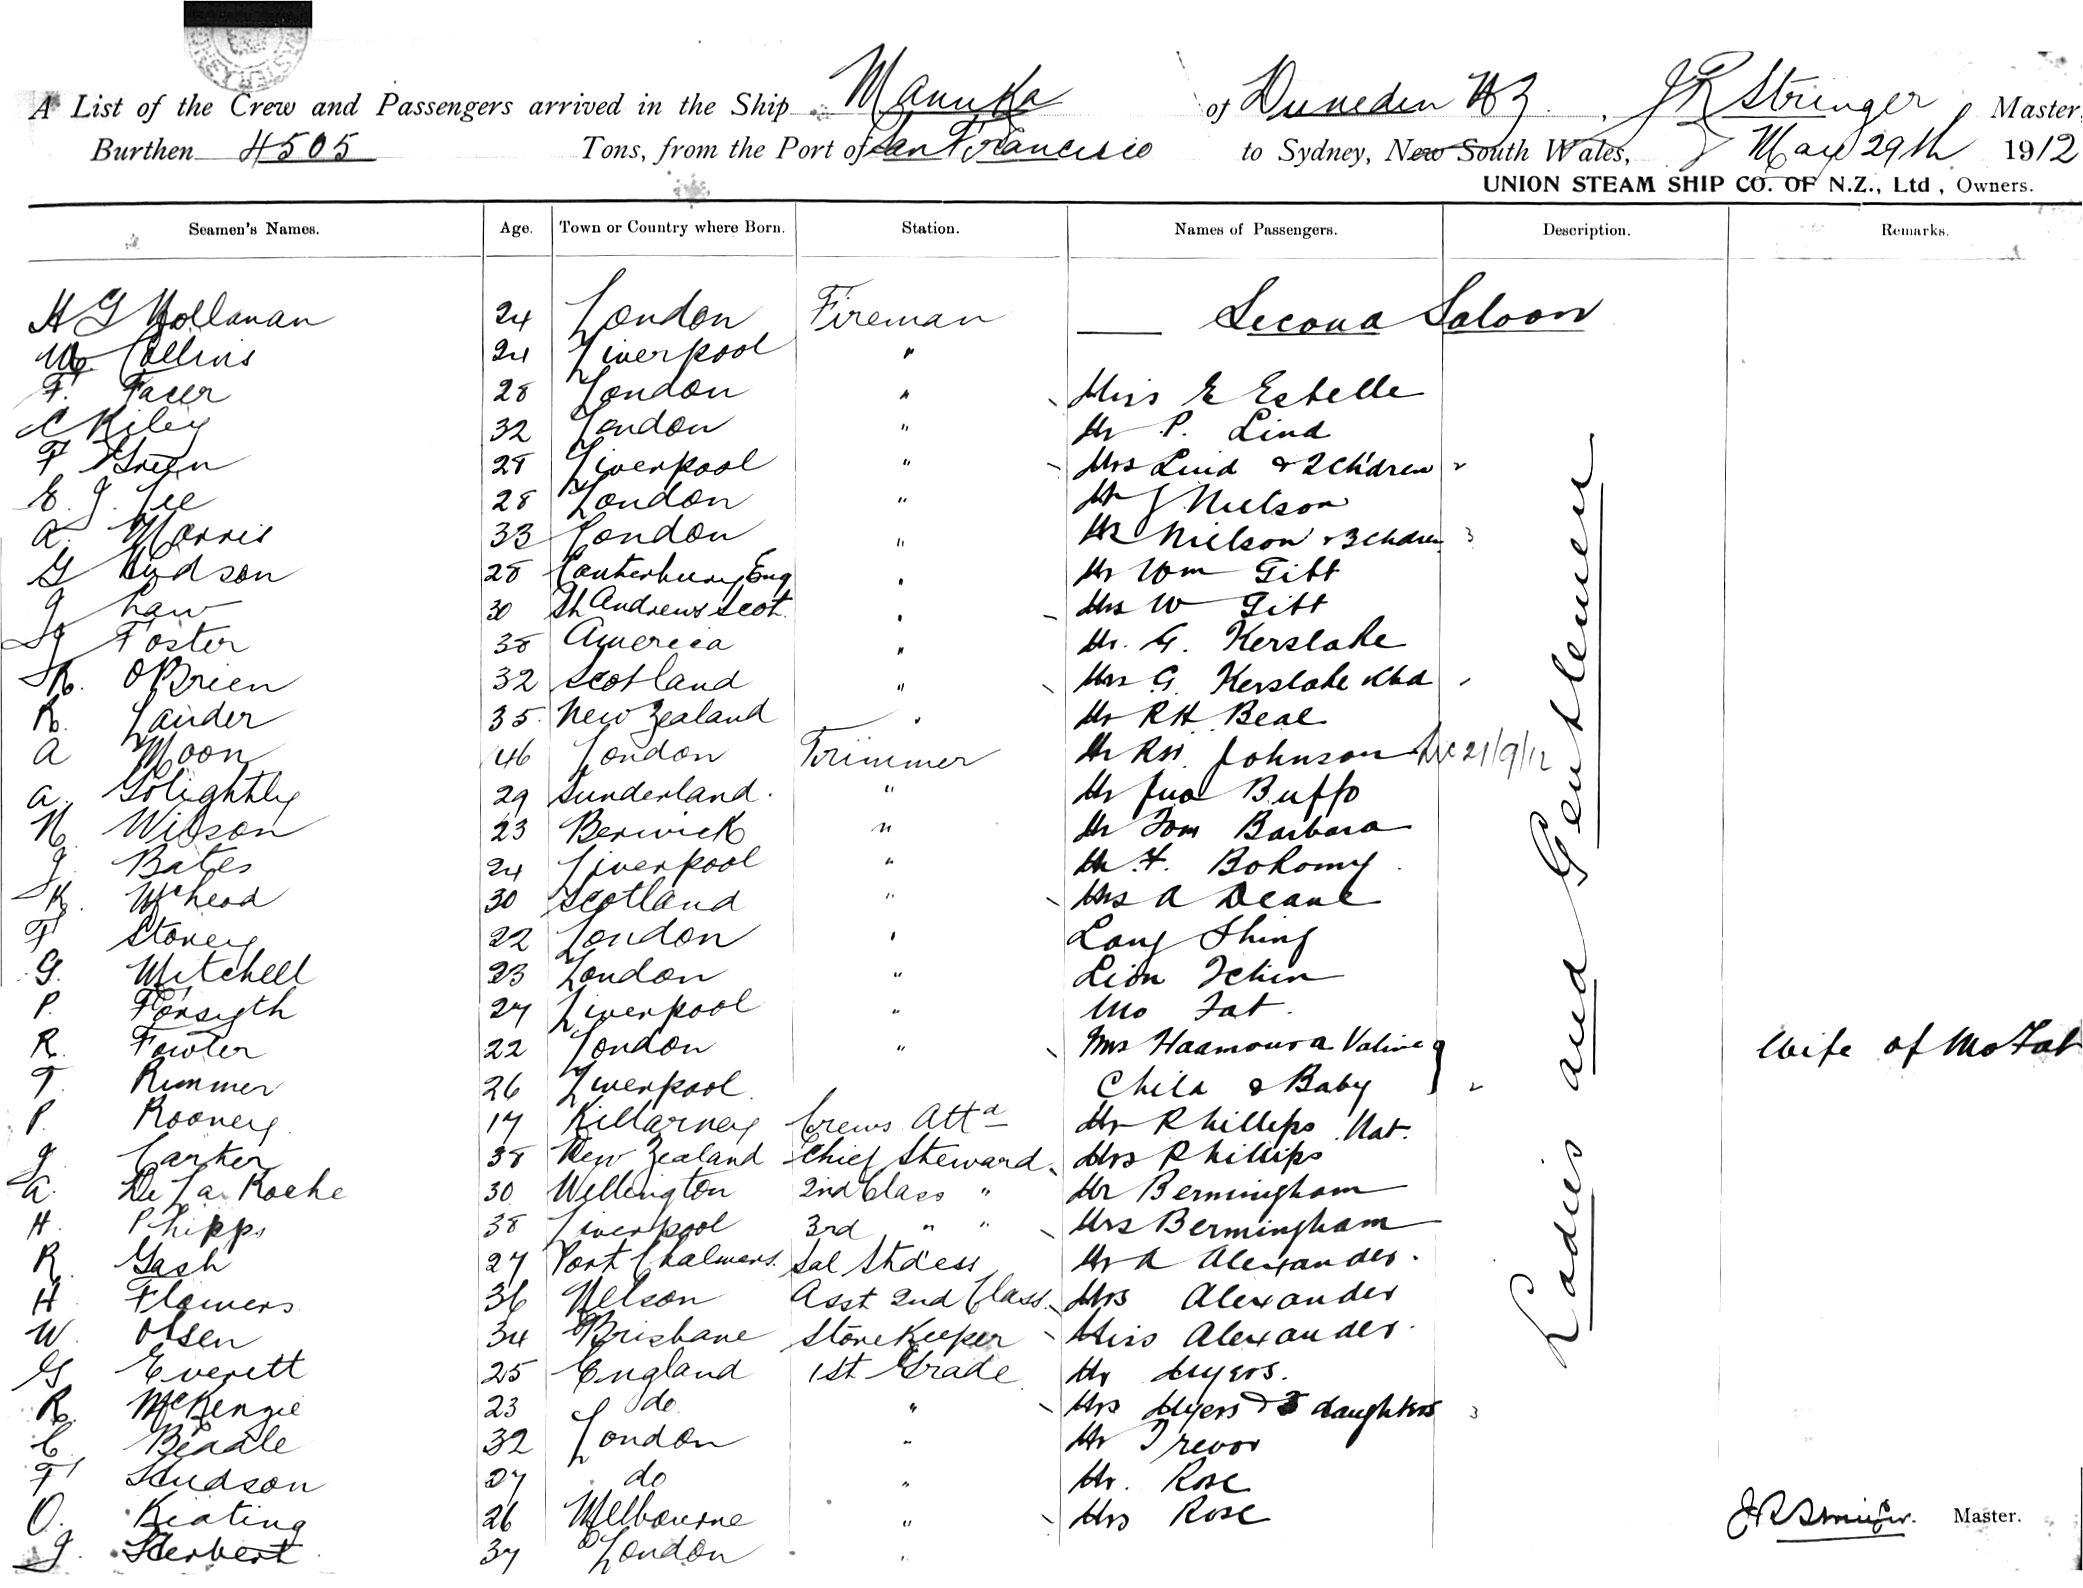 A List of the Crew and Passengers arrived in the Ship Manuka of Duneden NZ. J R Stringer Master,
Burthen 4505 Tons, from the Port of San Francisco to Sydney, New South Wales, May 29th 1912
UNION STEAM SHIP CO. OF N.Z., Ltd, Owners.
Seamen's Names. Age. Town or Country where Born. Station. Names of Passengers. Description. Remarks.
H G 24 London Fireman Second Saloon
W Collins 24 Liverpool "
F. Facer 28 London " Miss E Estelle
C Riley 32 London " Mr P. Lind
F Green 28 Liverpool " Mrs Lind & 2 Chdren 2
E. J. Lee 28 London " Mr J Nielson
A. Morris 33 London " Mrs Nielson & 3 Chdren 3
G Hudson 28 Canterbury Eng " Mr Wm Titt
J Law 30 St Andrews Scot. " Mrs W Titt
J Foster 38 America " Mr. G. Kerslake
R. O'Brien 32 Scotland " Mrs G. Kerslake & Chd
R. Lauder 35 New Zealand " Mr RH Beal
A Moon 46 London Trimmer Mr RH Johnson 21/9/12
A. Golightly 29 Sunderland. " Mr Jno Buffo
N. Wilson 23 Berwick " Mr Tom Barbara
J. Bates 24 Liverpool " Mr F. Bokomy
K. McLeod 30 Scotland " Mrs A Deane
F Stoney 22 London " Long Shing
G. Mitchell 23 London " Lion Tchin
P. Forsyth 27 Liverpool " Mo Fat.
R. Fowler 22 London " Mrs Haamoura Valine Wife of Mo Fat
T. Rimmer 26 Liverpool Child & Baby 2
P. Rooney 17 Killarney Crews Attd Mr Phillips Nat.
J. Carter 38 New Zealand Chief Steward Mrs Phillips
A. De La Roche 30 Wellington 2nd Class " Mr Bermingham
H. Phipps 38 Liverpool 3rd " " Mrs Bermingham
R. Gash 27 Port Chalmers. Sal Stdess Mr A Alexander.
H. Flowers 36 Nelson Asst 2nd Class Mrs Alexander
W. Olsen 34 Brisbane Storekeeper Miss Alexander.
G Everett 25 England 1st Grade Mr Myers.
R. McKenzie 23 do " Mrs Myers & 3 daughters 3
C. Beadle 32 London " Mr Trevor
F Hudson 27 do " Mr. Rose
O. Keating 26 Melbourne " Mrs Rose
J. Herbert 37 London "
Ladies and Gentlemen
J R Stringer. Master.